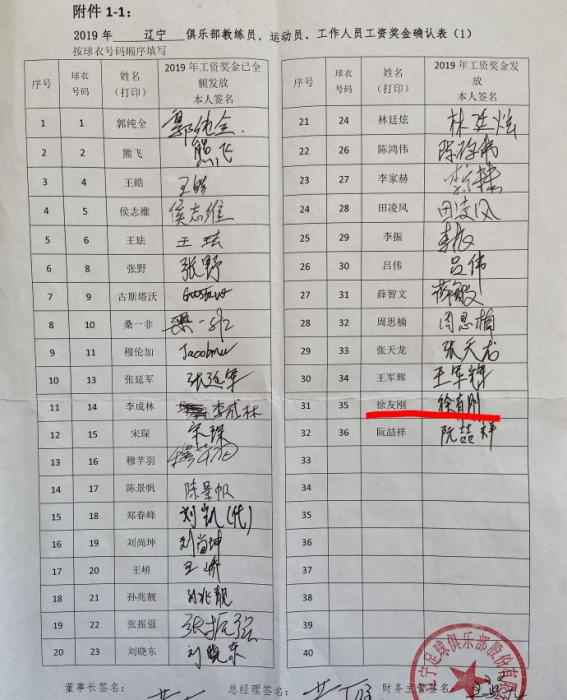 附件 1-1：
2019 年 辽宁 俱乐部教练员、运动员、工作人员工资奖金确认表（1）
按球衣号码顺序填写
序号 球衣号码 姓名（打印） 2019 年工资奖金已全额发放 本人签名
1 1 郭纯全 郭纯全
2 2 熊飞 熊飞
3 4 王皓 王皓
4 5 侯志维 侯志维
5 6 王珐 王珐
6 8 张野 张野
7 9 古斯塔沃 Gustavo
8 10 桑一非 桑一非
9 11 穆伦加 Jacobmu
10 13 张延军 张延军
11 14 李成林 李成林
12 15 宋琛 宋琛
13 16 穆芊羽
14 17 陈景帆 陈景帆
15 18 郑春峰 刘凯(代)
16 19 刘尚坤 刘尚坤
17 20 王峤 王峤
18 21 孙兆靓 孙兆靓
19 22 张振强 张振强
20 23 刘晓东 刘晓东
序号 球衣号码 姓名（打印） 2019 年工资奖金发放 本人签名
21 24 林廷炫 林廷炫
22 26 陈鸿伟
23 27 李家赫
24 28 田凌风 田凌风
25 29 李振 李振
26 30 吕伟 吕伟
27 31 薛智文
28 32 周思楠 周思楠
29 33 张天龙 张天龙
30 34 王军辉 王军辉
31 35 徐友刚 徐友刚
32 36 阮喆祥 阮喆祥
33
34
35
36
37
38
39
40
董事长签名： 总经理签名： 财务主管签名：
辽宁足球俱乐部股份有限